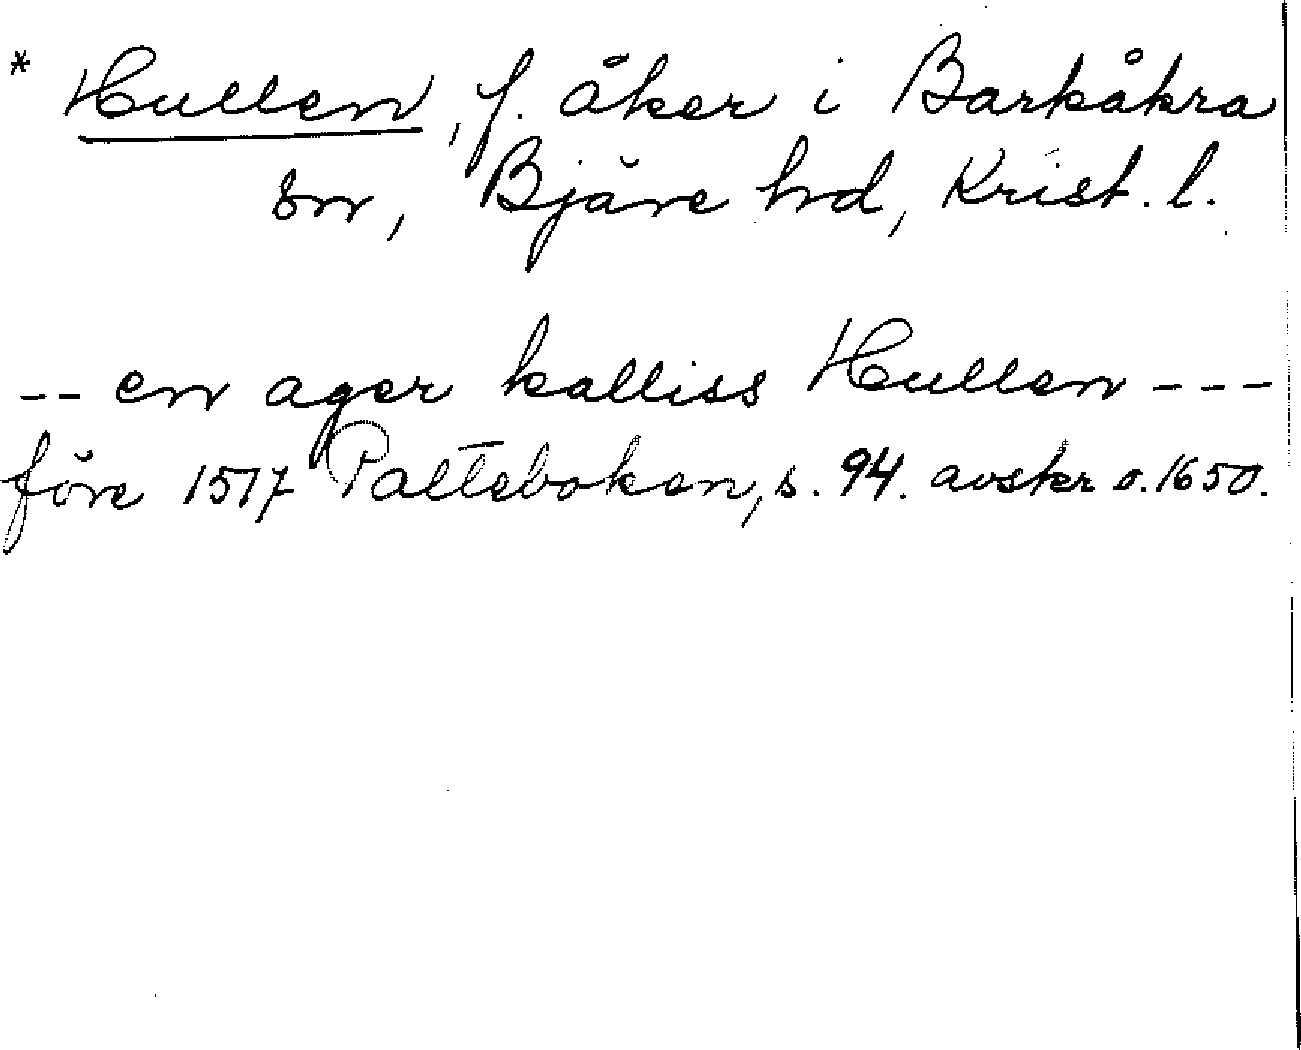 * Hullen, f. åker i Barkåkra
sn, Bjäre hd, Krist. l.
-- en ager kalliss Hullen ---
före 1517 Palteboken, s. 94. avskr o. 1650.